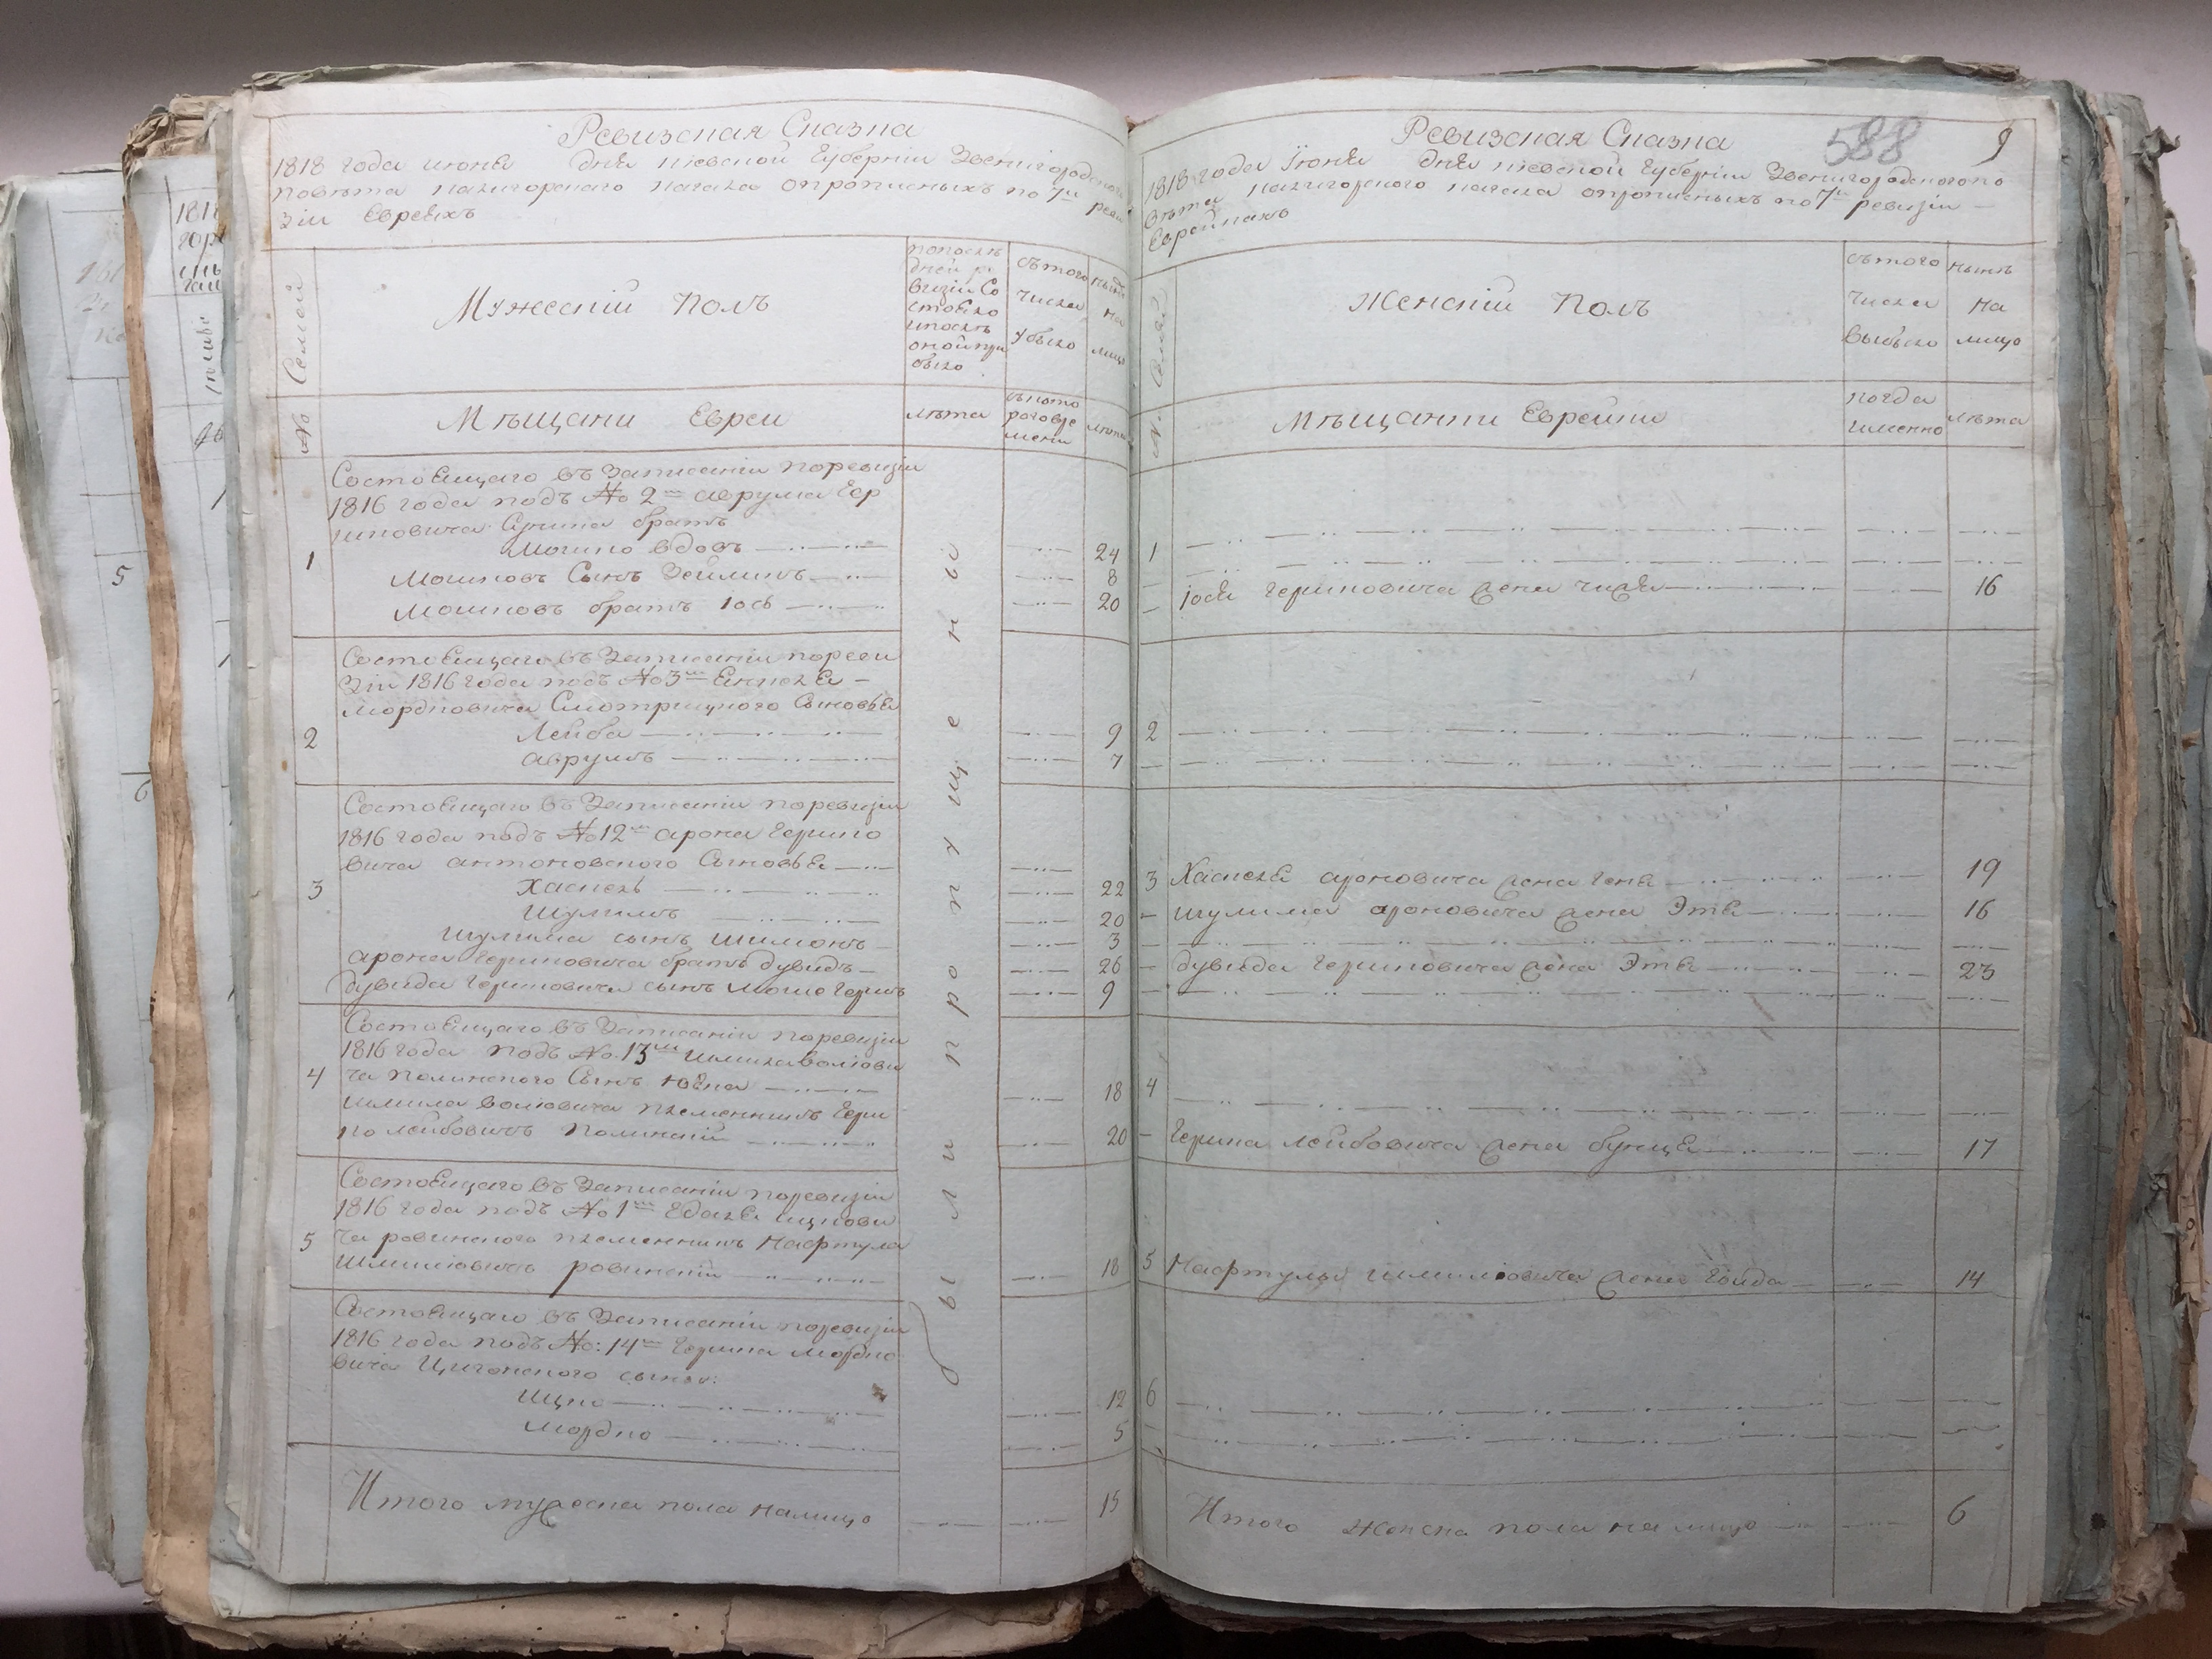 Ревизская Сказка
1818 года июня дня киевской Губерніи Звенигородского
повѣта калигорскаго кагала опрописныхъ по 7й реви
зіи Евреяхъ
№ Семей
Мужескій Полъ
попослѣ
дней ре
визіи Со
стояло
ипослѣ
оной при
было
сътого
числа
убыло
нынѣ
на
лицо
Мѣщани Евреи
лѣта
съкото
раговре
мени
лѣта
были пропущены
Состоящаго въ Записаніи поревизіи
1816 года подъ № 2м аврума Гер
шковича братъ
1 Мошко вдовъ 24
Мошковъ Сынъ Зейликъ 8
Мошковъ братъ Іось 20
Состоящаго въ Записаніи пореви
зіи 1816 года подъ № 3м Янкеля
Мордковича Смотрицкого Сыновья
2 Лейба 9
аврумъ 7
Состоящаго въ Записаніи поревизіи
1816 года подъ № 12м арона Гершко
вича антоновского Сыновья
3 Хаскель 22
Шулимъ 20
Шулима сынъ Шимонъ 3
арона Гершковича братъ дувидъ 26
дувида Гершковича сынъ Мошко Гершъ 9
Состоящаго въ Записаніи поревизіи
1816 года подъ № 13м Шмилаволкови
4 ча полинского Сынъ 18
Шмила волковича племенникъ Герш
ко лейбовичъ Полинскій 20
Состоящаго въ Записаніи поревизіи
1816 года подъ № 1м Ицкови
5 ча ровинского племенникъ Нафтула
Шмилювичъ ровинскій 18
Состоящаго въ Записаніи поревизіи
1816 года подъ №: 14м Гершка Мордко
вича Циганского сыны:
Ицко 12
Мордко 5
Итого мужеска пола налицо 15
Ревизская Сказка
588 9
1818 года Іюня дня киевской Губерніи Звенигородскогопо
вѣта калигорского кагала опрописныхъ по 7й ревизіи
Еврейкахъ
№ Семей
Женскій Полъ
сътого
числа
выбыло
нынѣ
на
лицо
Мѣщанки Еврейки
когда
именно
лѣта
1
Іося Гершковича жена 16
2
3 Хаскеля ароновича жена Геня 19
Шулима ароновича жена Этя 16
дувида Гершковича жена Этя 23
4
Гершка Лейбовича жена бунця 17
5 Нафтулы Шмилювича жена Голда 14
6
Итого женска пола на лицо 6